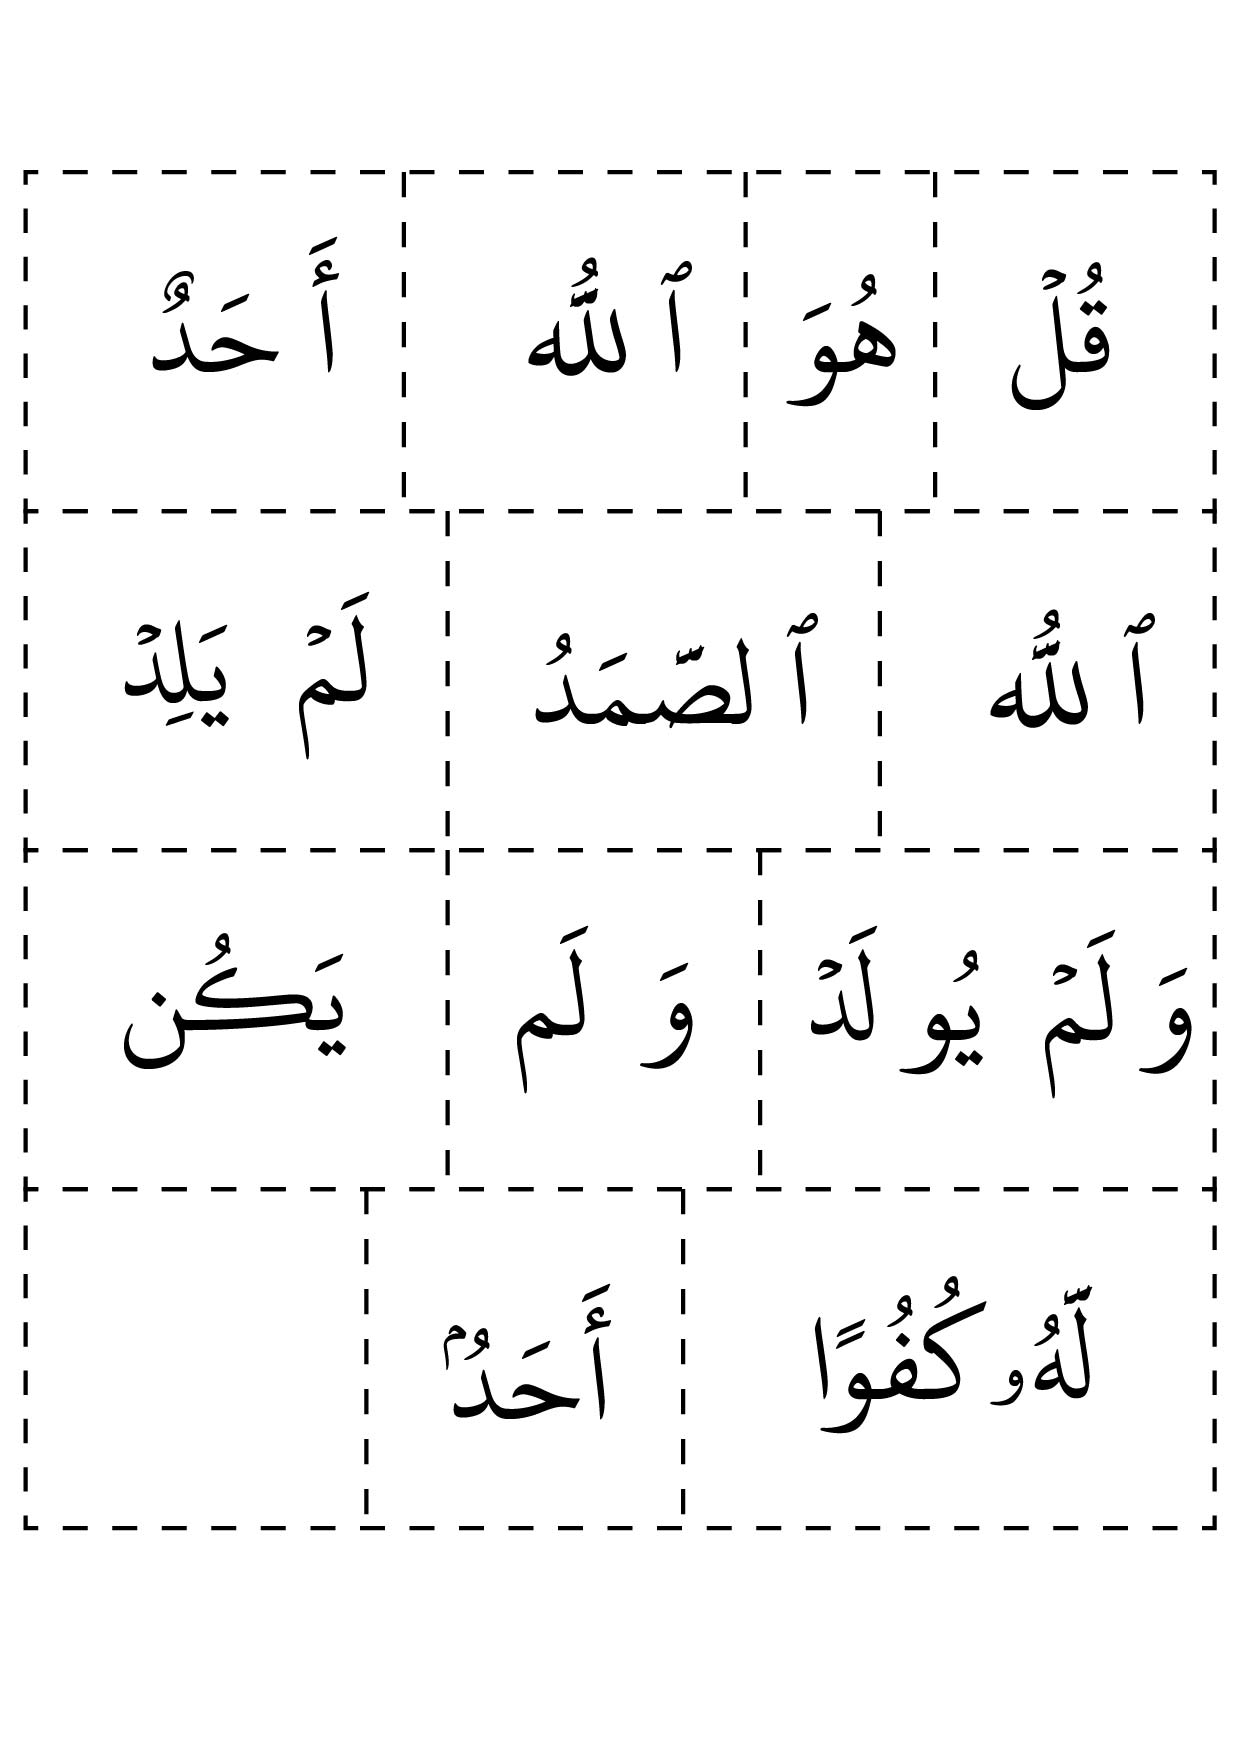 قُلۡ هُوَ ٱللَّهُ أَحَدٌ
ٱللَّهُ ٱلصَّمَدُ لَمۡ يَلِدۡ
وَلَمۡ يُولَدۡ وَلَم يَكُن
لَّهُۥ كُفُوًا أَحَدُۢ